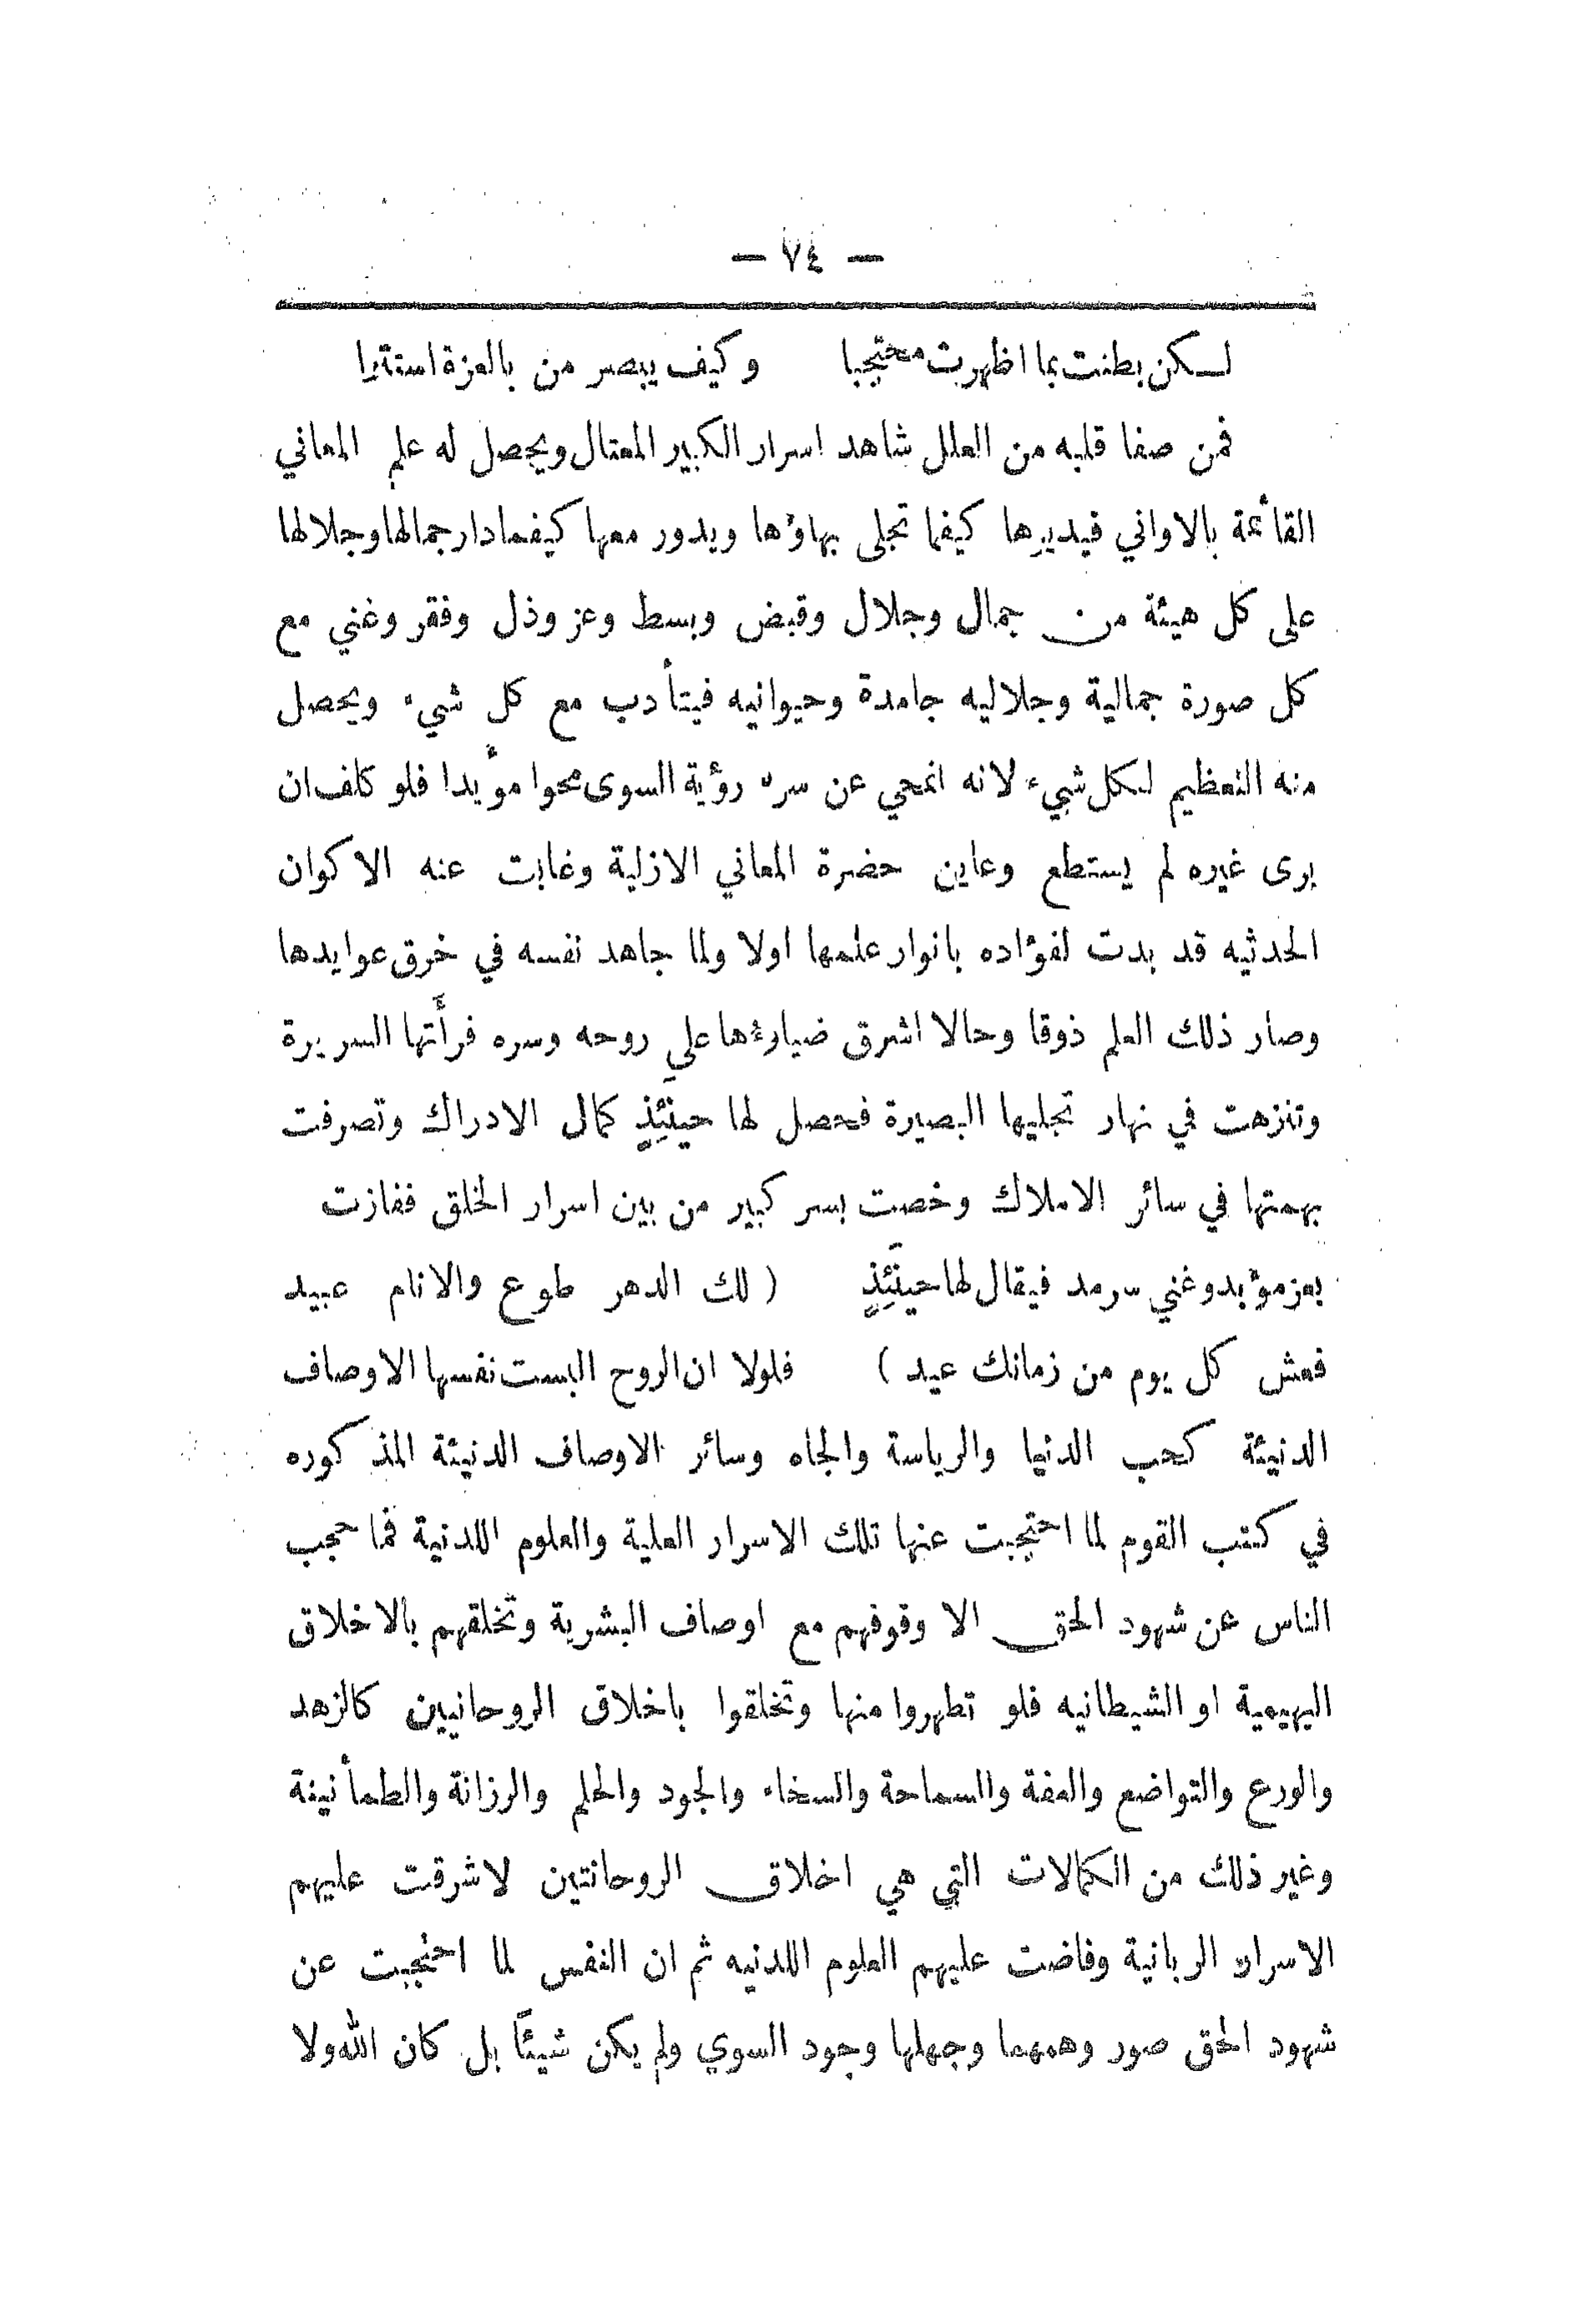 — ٧٤ —
لكن بطنت بما اظهرت محتجبا وكيف يبصر من بالعزة استترا
فمن صفا قلبه من العلل شاهد اسرار الكبير المتعال ويحصل له علم المعاني
القائمة بالاواني فيديرها كيفما تجلى بهاؤها ويدور معها كيفما دار جمالها وجلالها
على كل هيئة من جمال وجلال وقبض وبسط وعز وذل وفقر وغني مع
كل صورة جمالية وجلاليه جامدة وحيوانيه فيتأدب مع كل شيء ويحصل
منه التعظيم لكل شيء لانه انمحي عن سره رؤية السوى محوا مؤيدا فلو كلف ان
يرى غيره لم يستطع وعاين حضرة المعاني الازلية وغابت عنه الاكوان
الحدثيه قد بدت لفؤاده بانوار علمها اولا ولما جاهد نفسه في خرق عوايدها
وصار ذلك العلم ذوقا وحالا اشرق ضياؤها علي روحه وسره فرأتها السريرة
وتنزهت في نهار تجليها البصيرة فحصل لها حينئذٍ كمال الادراك وتصرفت
بهمتها في سائر الاملاك وخصت بسر كبير من بين اسرار الخلق ففازت
بعز مؤبد وغني سرمد فيقال لها حينئذٍ ( لك الدهر طوع والانام عبيد
فعش كل يوم من زمانك عيد ) فلولا ان الروح البست نفسها الاوصاف
الدنيئة كحب الدنيا والرياسة والجاه وسائر الاوصاف الدنيئة المذكوره
في كتب القوم لما احتجبت عنها تلك الاسرار العلية والعلوم اللدنية فما حجب
الناس عن شهود الحق الا وقوفهم مع اوصاف البشرية وتخلقهم بالاخلاق
البهيمية او الشيطانيه فلو تطهروا منها وتخلقوا باخلاق الروحانيين كالزهد
والورع والتواضع والعفة والسماحة والسخاء والجود والحلم والرزانة والطمأنينة
وغير ذلك من الكمالات التي هي اخلاق الروحانتين لاشرقت عليهم
الاسرار الربانية وفاضت عليهم العلوم اللدنيه ثم ان النفس لما احتجبت عن
شهود الحق صور وهمهما وجهلها وجود السوي ولم يكن شيئًا بل كان الله ولا